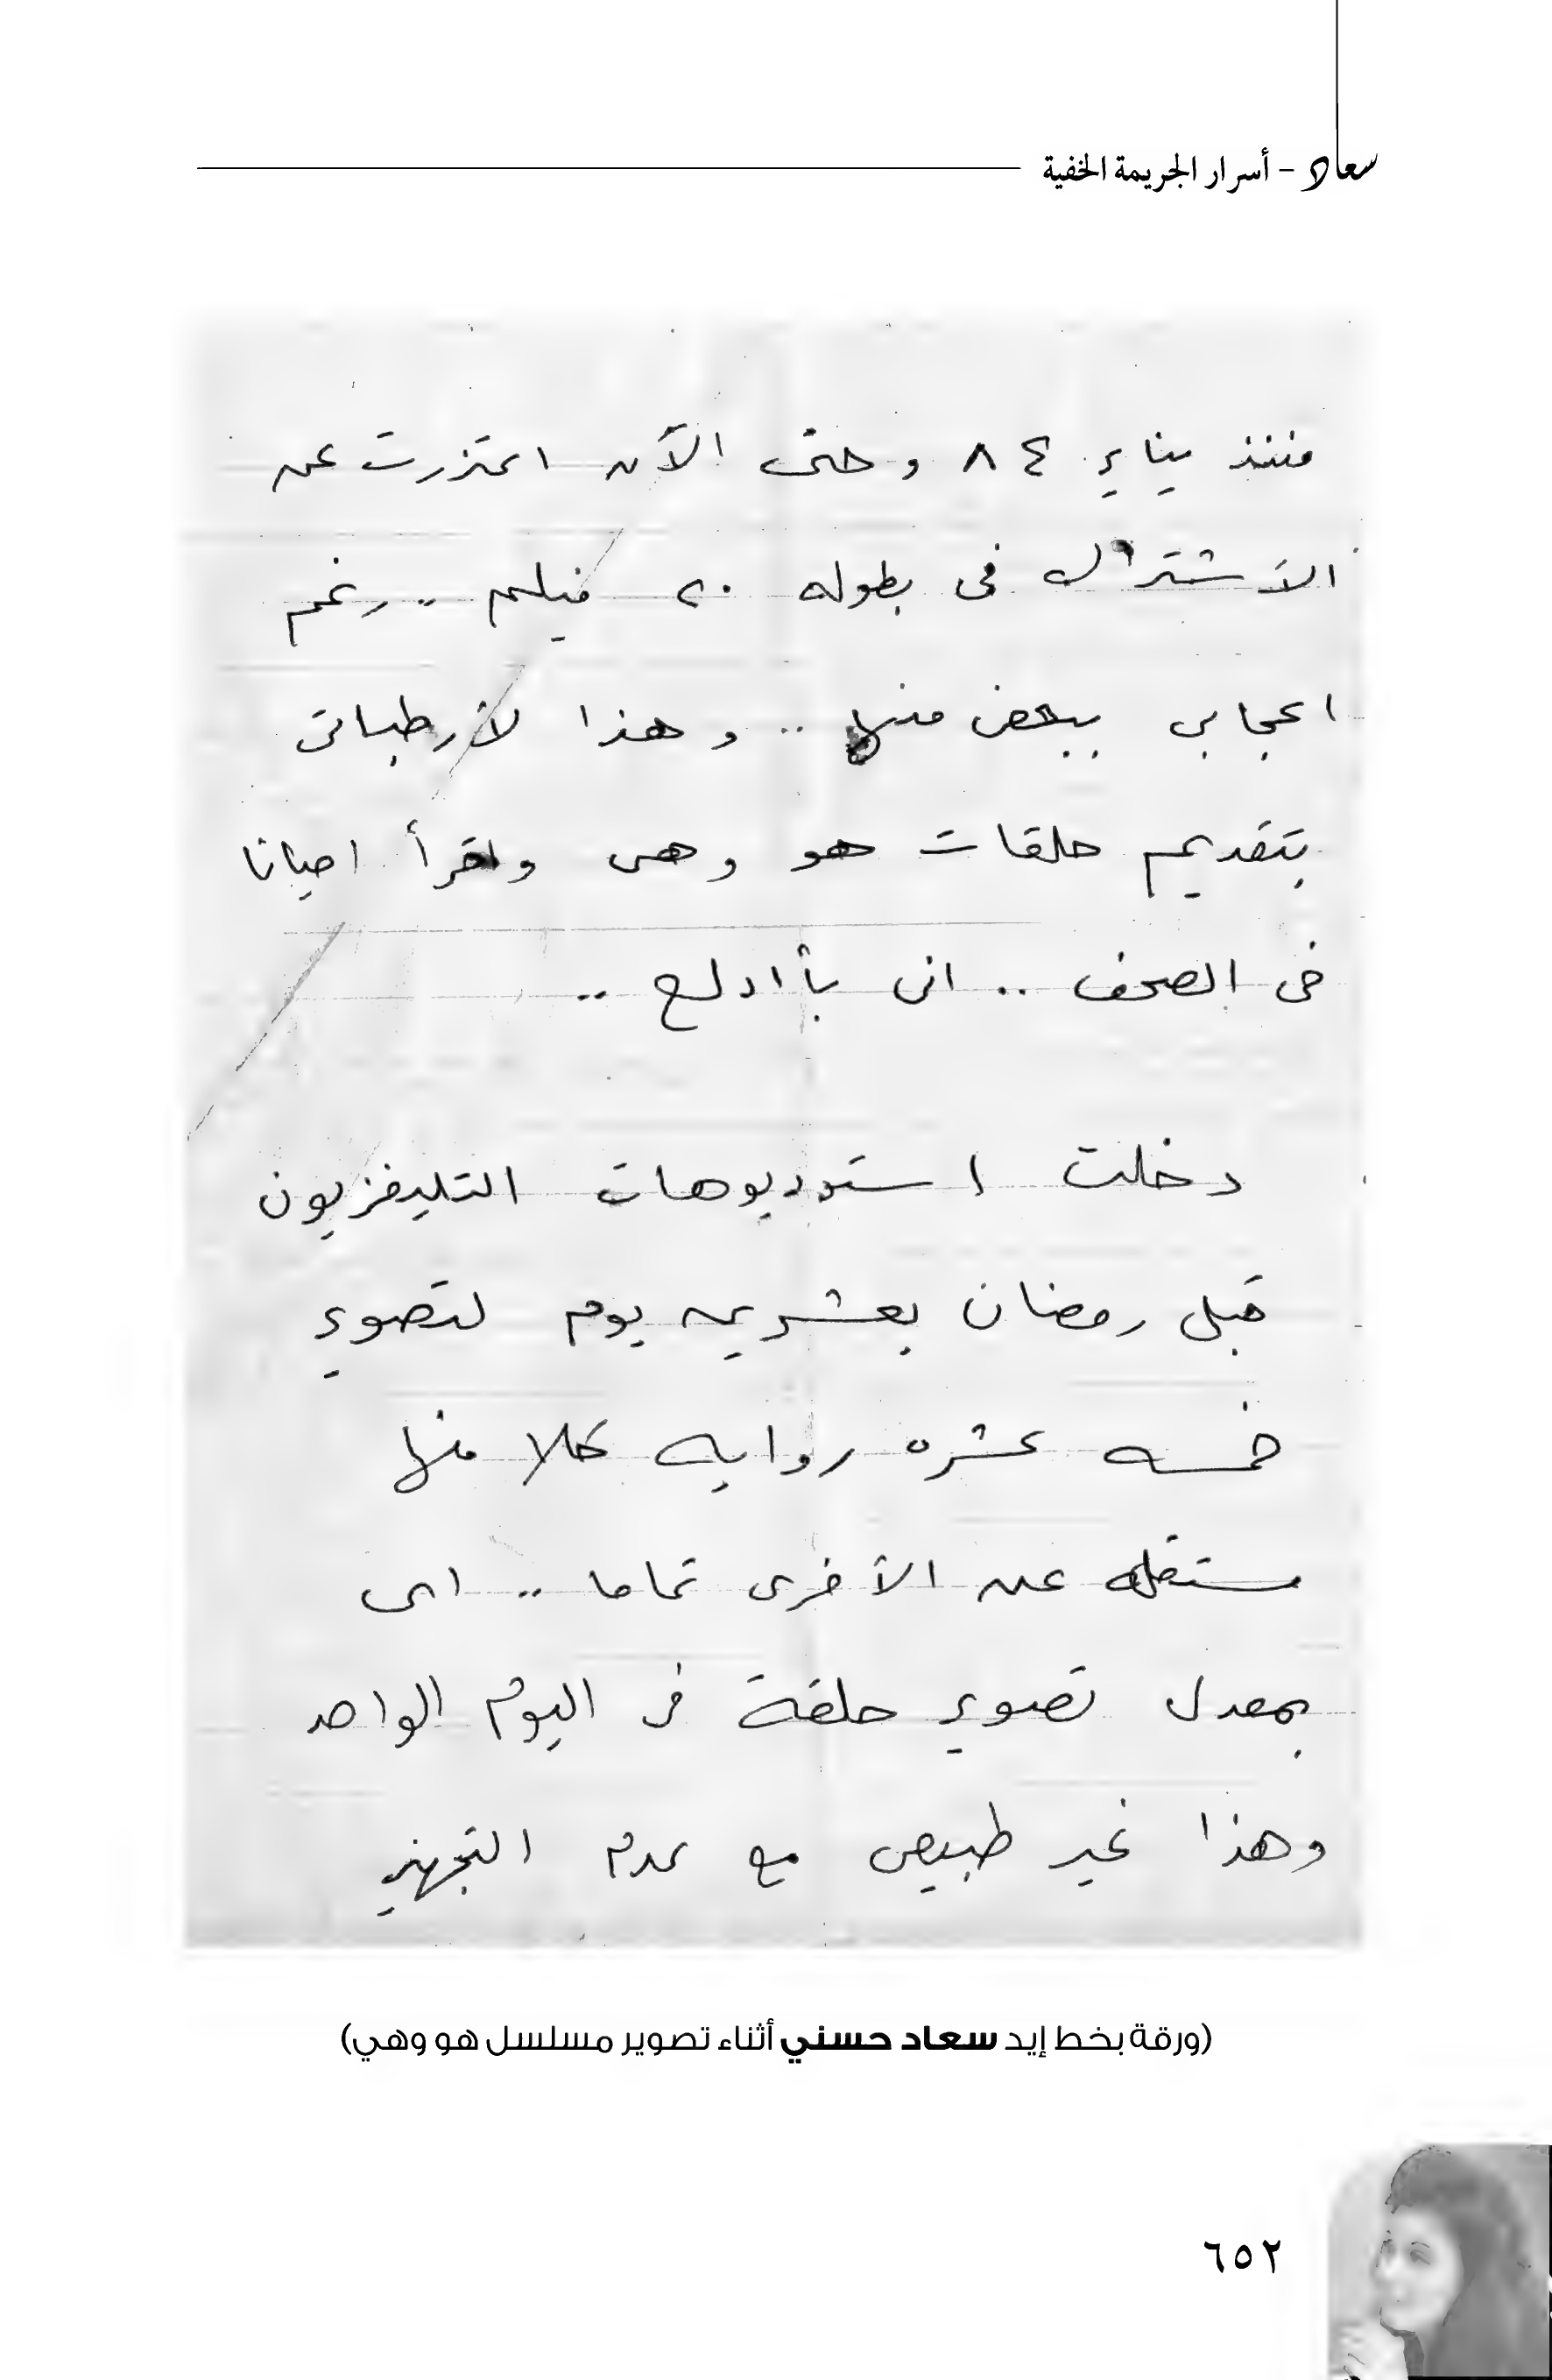 سعاد - أسرار الجريمة الخفية
فمنذ يناير ٨٤ وحتى الآن اعتزرت عن
الاشتراك فى بطوله ٢٠ فيلم .. رغم
اعجابى ببعض منها .. وهذا لأرطباتى
بتقديم حلقات هو وهى واقرأ احيانا
فى الصحف .. انى بأادلع ..
دخلت استوديوهات التليفزيون
قبل رمضان بعشرين يوم لتصوير
خمسه عشره روايه كلا منها
مستقله عن الأخرى تماما .. اى
بمعدل تصوير حلقة فى اليوم الواحد
وهذا غير طبيعى مع عدم التجهيز
(ورقة بخط إيد سعاد حسني أثناء تصوير مسلسل هو وهي)
٦٥٢